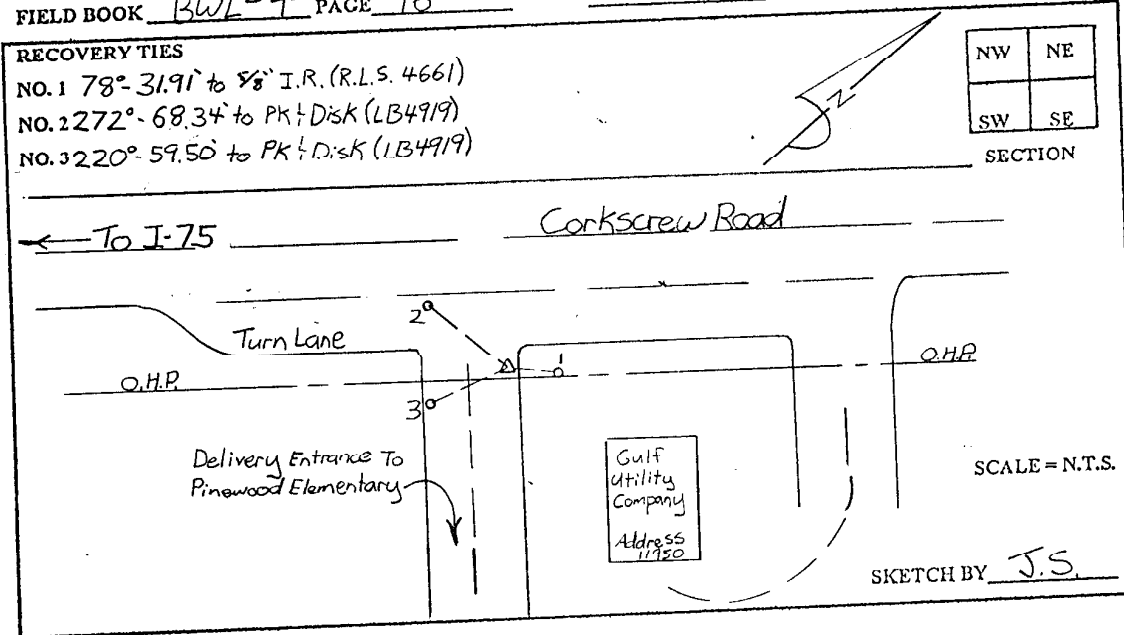 FIELD BOOK BWL-1 PAGE 10
RECOVERY TIES
NO. 1 78°- 31.91' to 5/8" I.R. (R.L.S. 4661)
NO. 2 272°- 68.34' to PK & Disk (LB4919)
NO. 3 220°- 59.50' to PK & Disk (LB4919)
N
NW NE
SW SE
SECTION
← To I-75
Corkscrew Road
2
Turn Lane
1
O.H.P.
O.H.P.
3
Delivery Entrance To
Pinewood Elementary
Gulf
Utility
Company
Address
11950
SCALE = N.T.S.
SKETCH BY J.S.